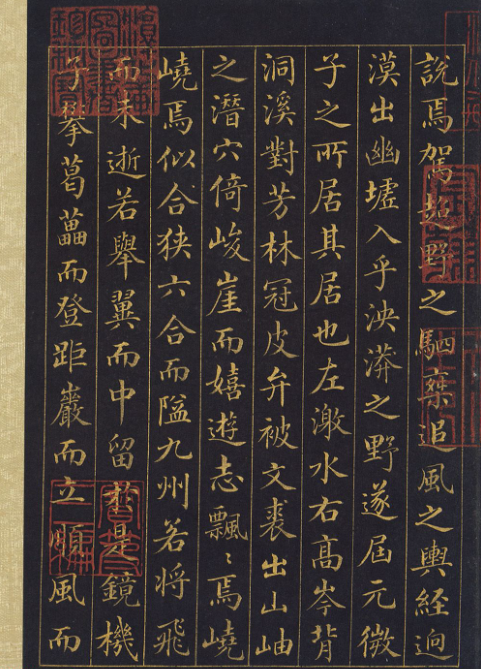 說焉駕超野之駟桒追風之輿經迥
漠出幽墟入乎泱漭之野遂屆元微
子之所居其居也左激水右高岑背
洞溪對芳林冠皮弁被文裘出山岫
之潛穴倚峻崖而嬉遊志飄〻焉嶢
嶢焉似合狹六合而隘九州若將飛
而未逝若舉翼而中留於是鏡機
子攀葛藟而登距巖而立順風而